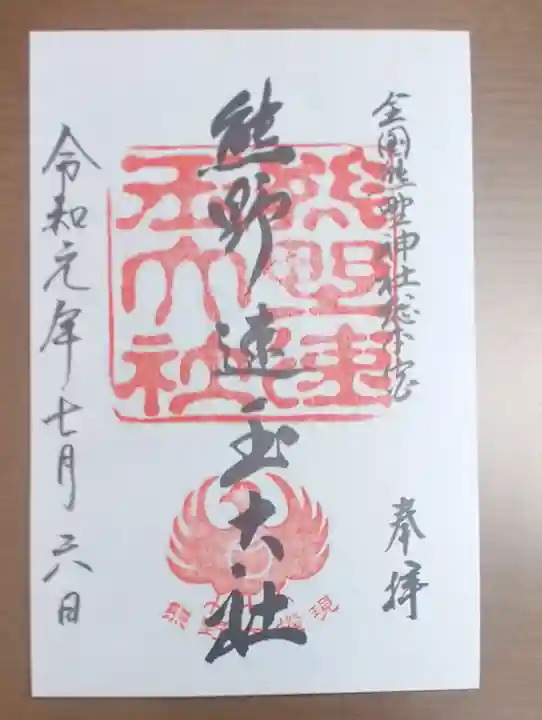 全国熊野神社総本宮
奉拝
熊野速玉大社
熊野速
玉大社
令和元年七月六日